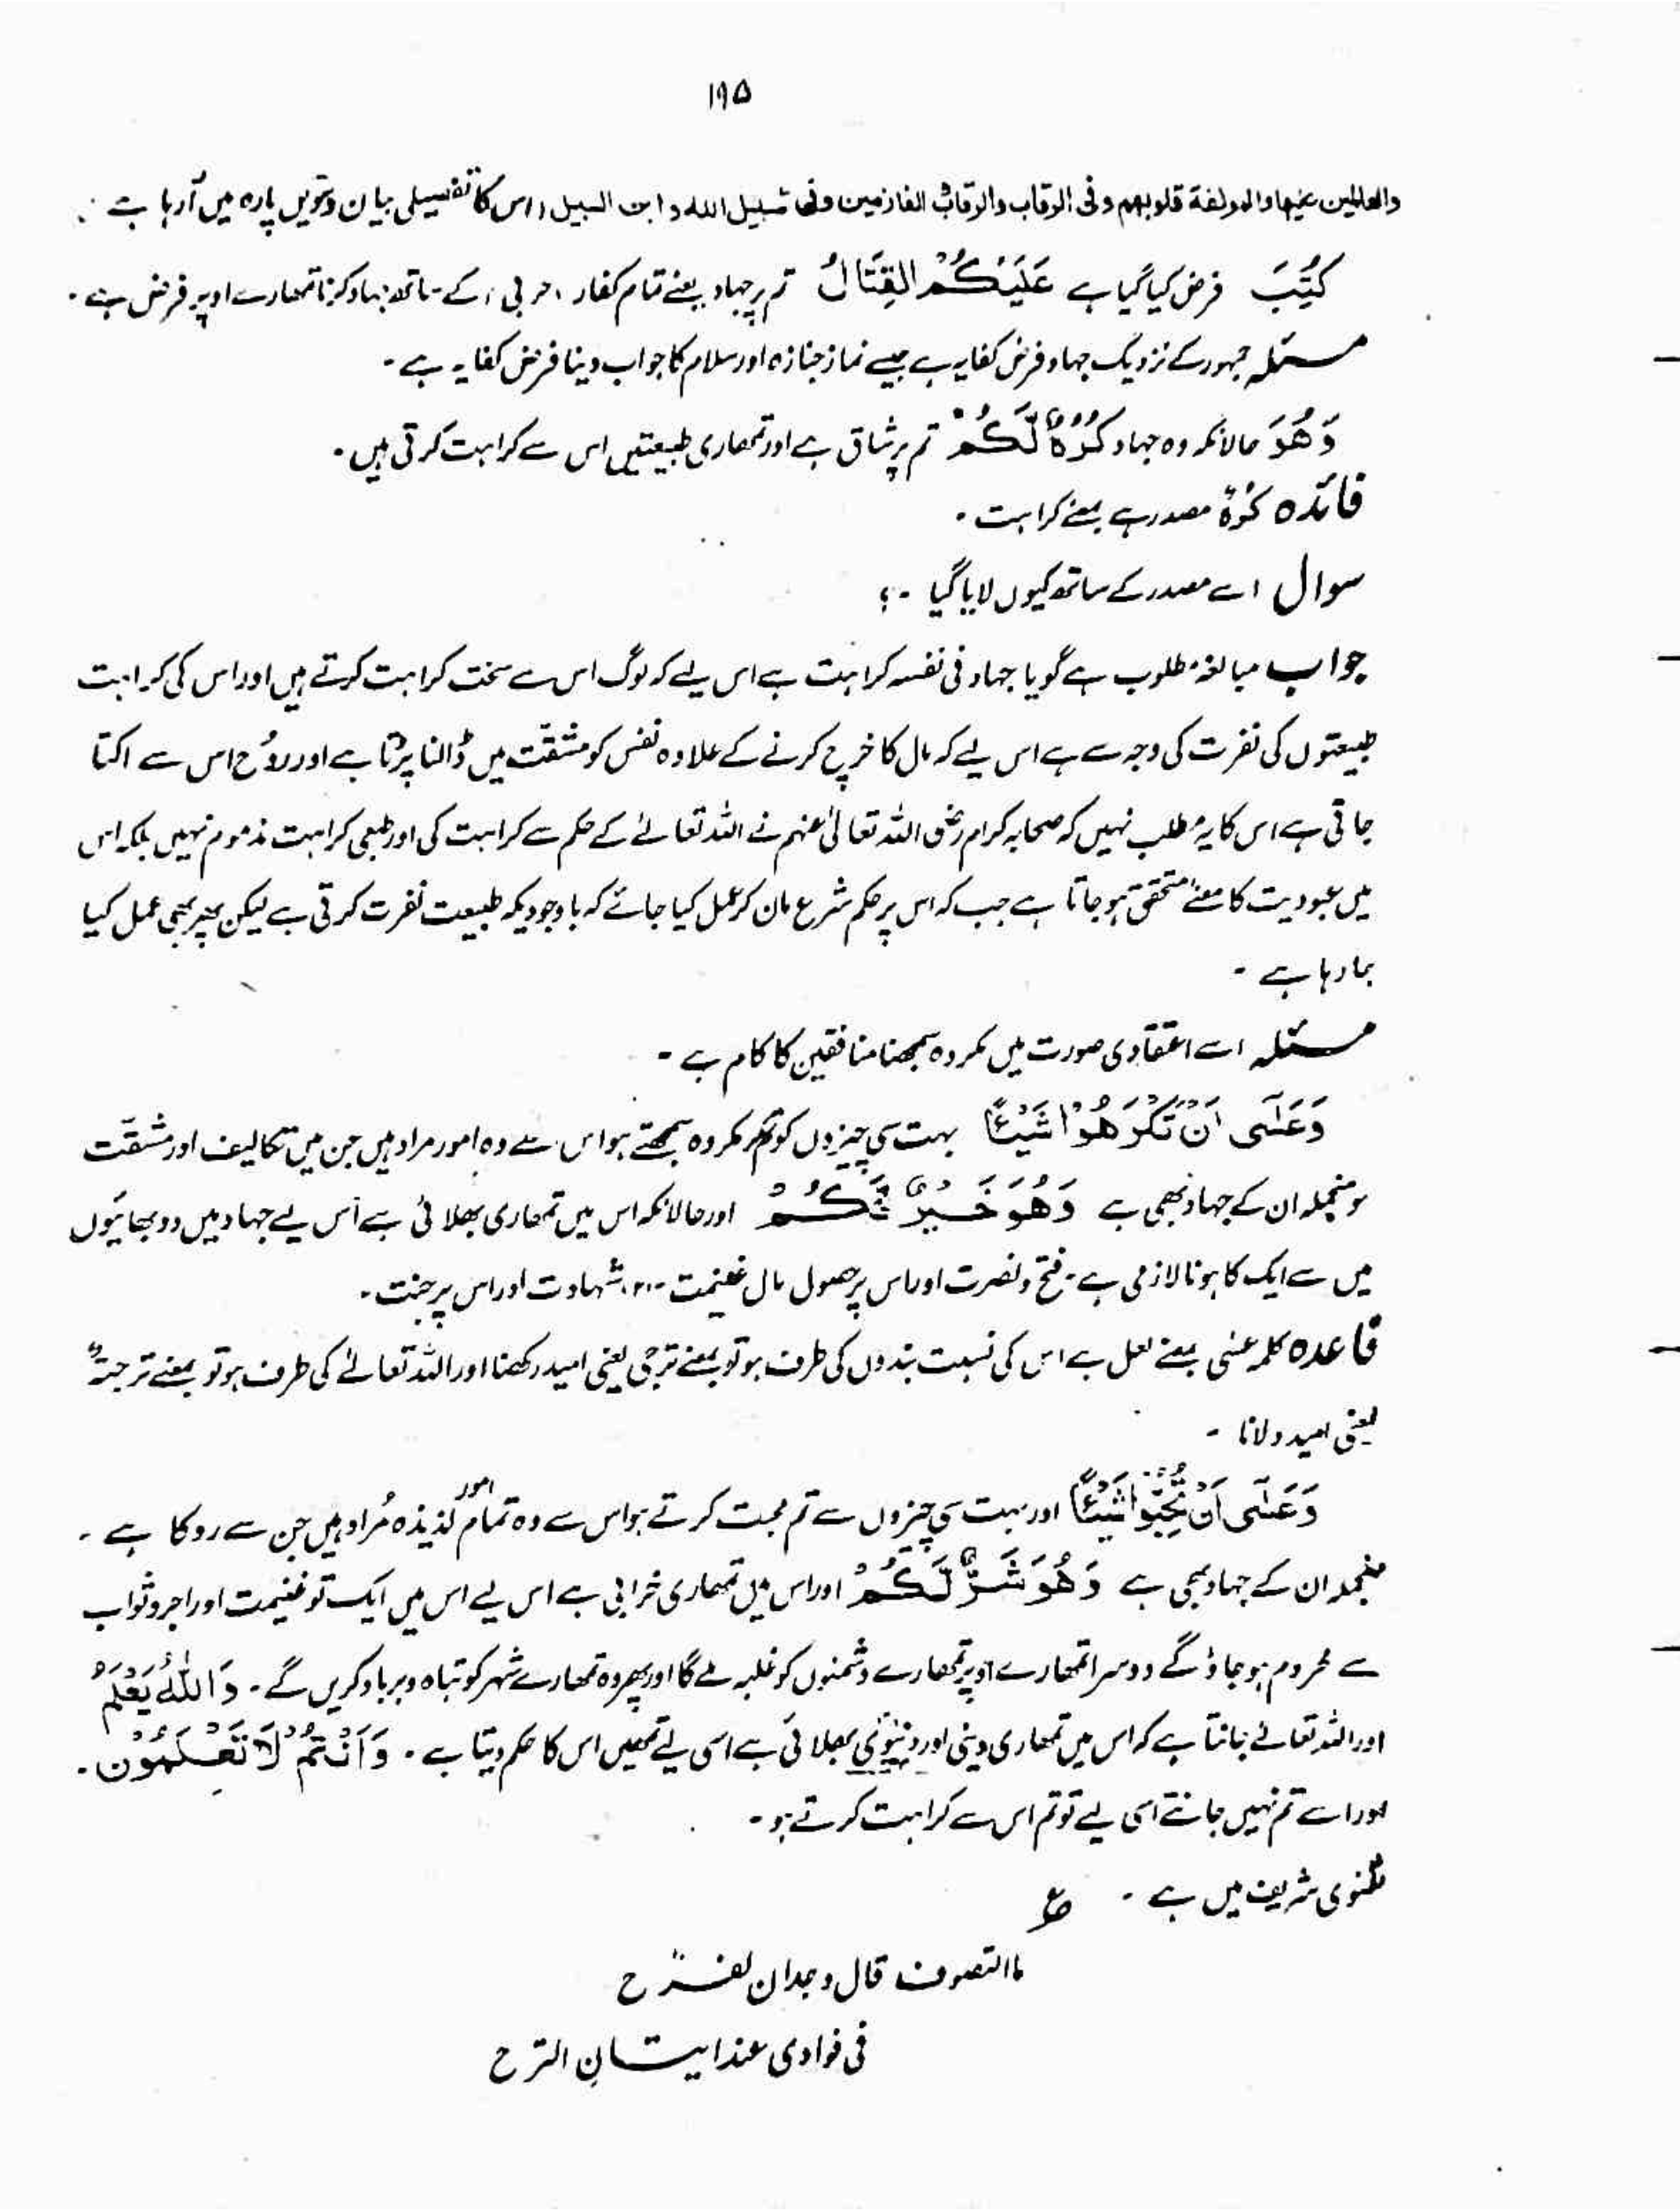 ۱۹۵
والعاملین علیہا والمولفة قلوبہم وفی الرقاب والرقاب الغازمین وفی سبیل اللہ و ابن السبیل، اس کا تفصیلی بیان دسویں پارہ میں آرہا ہے ۔
کُتِبَ فرض کیا گیا ہے عَلَیْکُمُ الْقِتَالُ تم پر جہاد یعنے تمام کفار (حربی) کے ساتھ جہاد کرنا تمھارے اوپر فرض ہے ۔
مسئلہ جمہور کے نزدیک جہاد فرض کفایہ ہے جیسے نماز جنازہ اور سلام کا جواب دینا فرض کفایہ ہے ۔
وَھُوَ حالانکہ وہ جہاد کُرْہٌ لَّکُمْ تم پر شاق ہے اور تمھاری طبیعتیں اس سے کراہت کرتی ہیں ۔
فائدہ کُرْہٌ مصدر ہے بمعنے کراہت ۔
سوال اسے مصدر کے ساتھ کیوں لایا گیا ۔؟
جواب مبالغہ مطلوب ہے گویا جہاد فی نفسہ کراہت ہے اس لیے کہ لوگ اس سے سخت کراہت کرتے ہیں اور اس کی کراہت
طبیعتوں کی نفرت کی وجہ سے ہے اس لیے کہ مال کا خرچ کرنے کے علاوہ نفس کو مشقّت میں ڈالنا پڑتا ہے اور روُح اس سے اکتا
جاتی ہے اس کا یہ مطلب نہیں کہ صحابہ کرام رضی اللہ تعالیٰ عنہم نے اللہ تعالےٰ کے حکم سے کراہت کی اور طبعی کراہت مذموم نہیں بلکہ اس
میں عبودیت کا معنےٰ متحقق ہو جاتا ہے جب کہ اس پر حکم شرع مان کر عمل کیا جائے کہ باوجودیکہ طبیعت نفرت کرتی ہے لیکن پھر بھی عمل کیا
جا رہا ہے ۔
مسئلہ اسے اعتقادی صورت میں مکروہ سمجھنا منافقین کا کام ہے ۔
وَعَسٰٓی اَنْ تَکْرَھُوْا شَیْئًا بہت سی چیزوں کو تم مکروہ سمجھتے ہو اس سے وہ امور مراد ہیں جن میں تکالیف اور مشقّت
ہو منجملہ ان کے جہاد بھی ہے وَھُوَ خَیْرٌ لَّکُمْ اور حالانکہ اس میں تمھاری بھلائی ہے اس لیے جہاد میں دو بھلائیوں
میں سے ایک کا ہونا لازمی ہے ۔ فتح و نصرت اور اس پر حصول مال غنیمت ۔ (۲) شہادت اور اس پر جنت ۔
قاعدہ کلمہ عسٰی بمعنے لعل ہے اس کی نسبت بندوں کی طرف ہو تو بمعنے ترجی یعنی امید رکھنا اور اللہ تعالےٰ کی طرف ہو تو بمعنے ترجیتہ
یعنی امید دلانا ۔
وَعَسٰٓی اَنْ تُحِبُّوْا شَیْئًا اور بہت سی چیزوں سے تم محبت کرتے ہو اس سے وہ تمام امور لذیذہ مُراد ہیں جن سے روکا ہے ۔
منجملہ ان کے جہاد بھی ہے وَھُوَ شَرٌّ لَّکُمْ اور اس میں تمھاری خرابی ہے اس لیے اس میں ایک تو غنیمت اور اجر و ثواب
سے محروم ہو جاؤ گے دوسرا تمھارے اوپر تمھارے دشمنوں کو غلبہ ملے گا اور پھر وہ تمھارے شہر کو تباہ و برباد کریں گے ۔ وَاللّٰہُ یَعْلَمُ
اور اللہ تعالےٰ جانتا ہے کہ اس میں تمھاری دینی اور دنیوی بھلائی ہے اسی لیے تمھیں اس کا حکم دیتا ہے ۔ وَاَنْتُمْ لَا تَعْلَمُوْن ۔
اور اسے تم نہیں جانتے اسی لیے تو تم اس سے کراہت کرتے ہو ۔
مثنوی شریف میں ہے ۔ ؏
ما التصوف قال وجدان لفرح
فی فوادی عند ایتان الترح